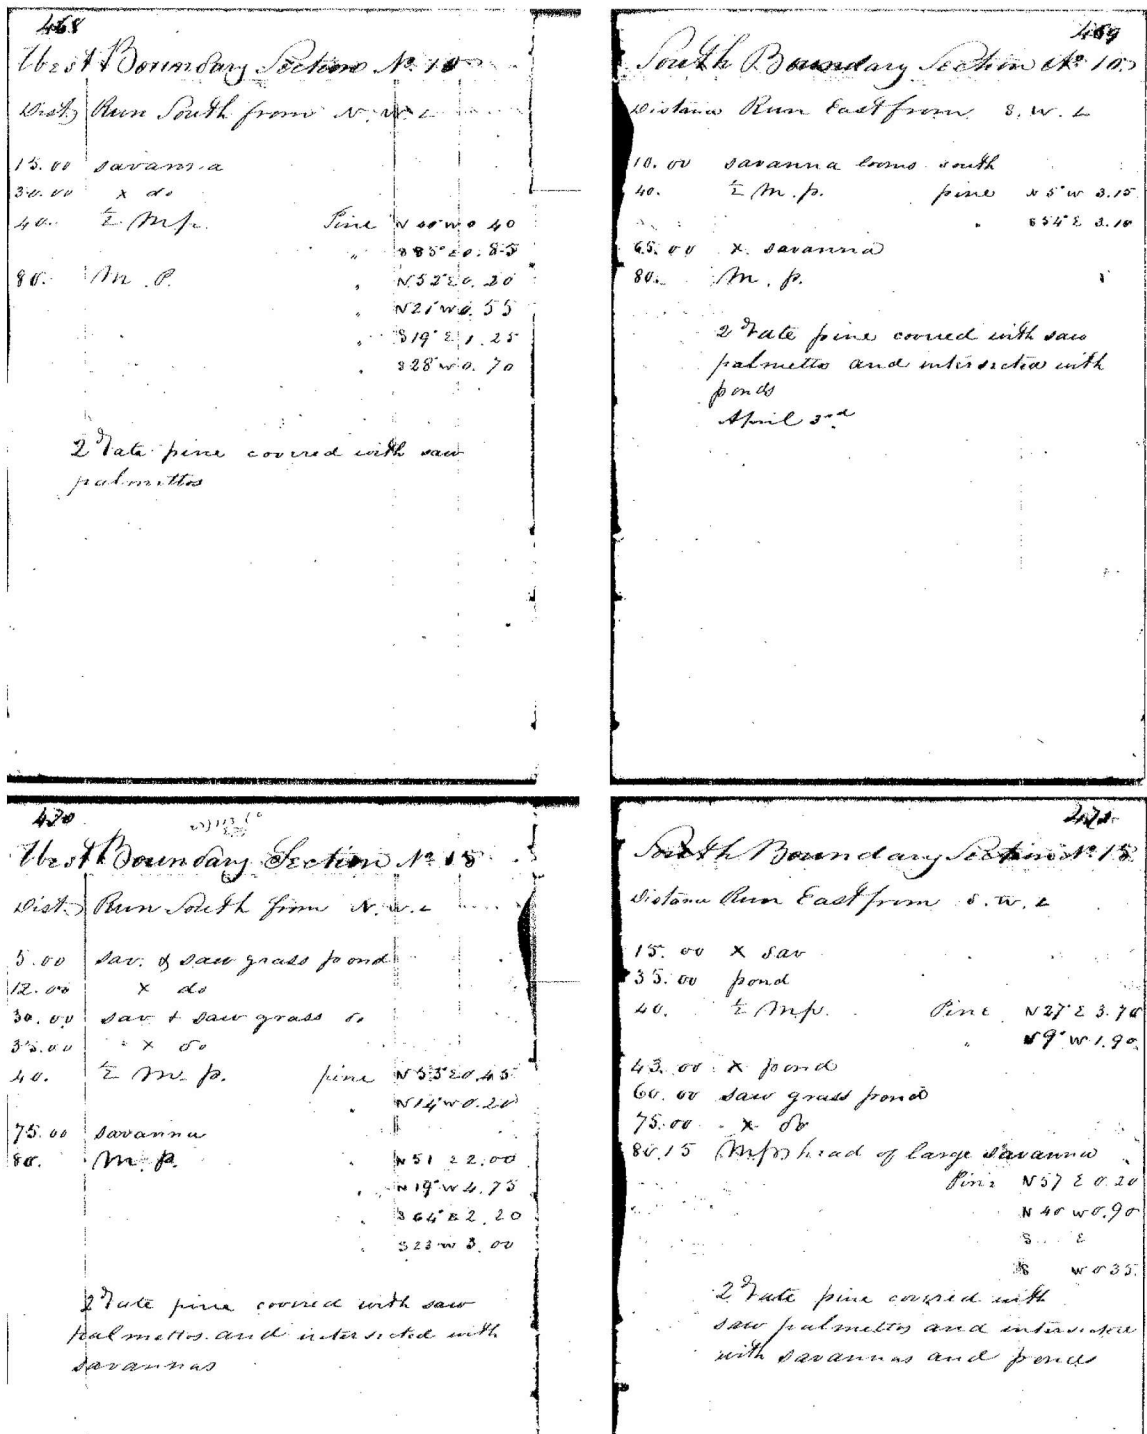 468
West Boundary Section No 10
Dist. Run South from N. W. C
15.00 savanna
30.00 x do
40. ½ M p. Pine N 40 W 0 40
" S 85° E 0. 85
80. M. P. " N 52° E 0. 20
" N 21° W 0. 55
" S 19° E 1. 25
" S 28° W 0. 70
2d rate pine covered with saw
palmettos
469
South Boundary Section No 10
Distance Run East from S. W. C
10.00 savanna looms south
40. ½ M. p. pine N 5° W 3.15
" S 54° E 3.10
65.00 x. savanna
80. M. p.
2d rate pine covered with saw
palmetto and intersected with
ponds
April 3rd
470
West Boundary Section No 15
Dist. Run South from N. W. C
5.00 sav. & saw grass pond
12.00 x do
30.00 sav & saw grass do
35.00 " x do
40. ½ M. p. pine N 53° E 0. 45
" N 14° W 0. 20
75.00 savanna
80. M. p. " N 51 E 2.00
" N 19° W 4.75
" S 64° E 2.20
" S 23 W 3.00
2d rate pine covered with saw
palmettos and intersected with
savannas
South Boundary Section No 15
Distance Run East from S. W. C
15.00 x sav
35.00 pond
40. ½ M p. Pine N 27° E 3.70
" N 9° W 1.90
43.00 x pond
60.00 saw grass pond
75.00 x do
80.15 (M p) head of large savanna
Pine N 57 E 0.20
N 40 W 0.90
S E
S W 0 35
2d rate pine covered with
saw palmettos and intersected
with savannas and ponds